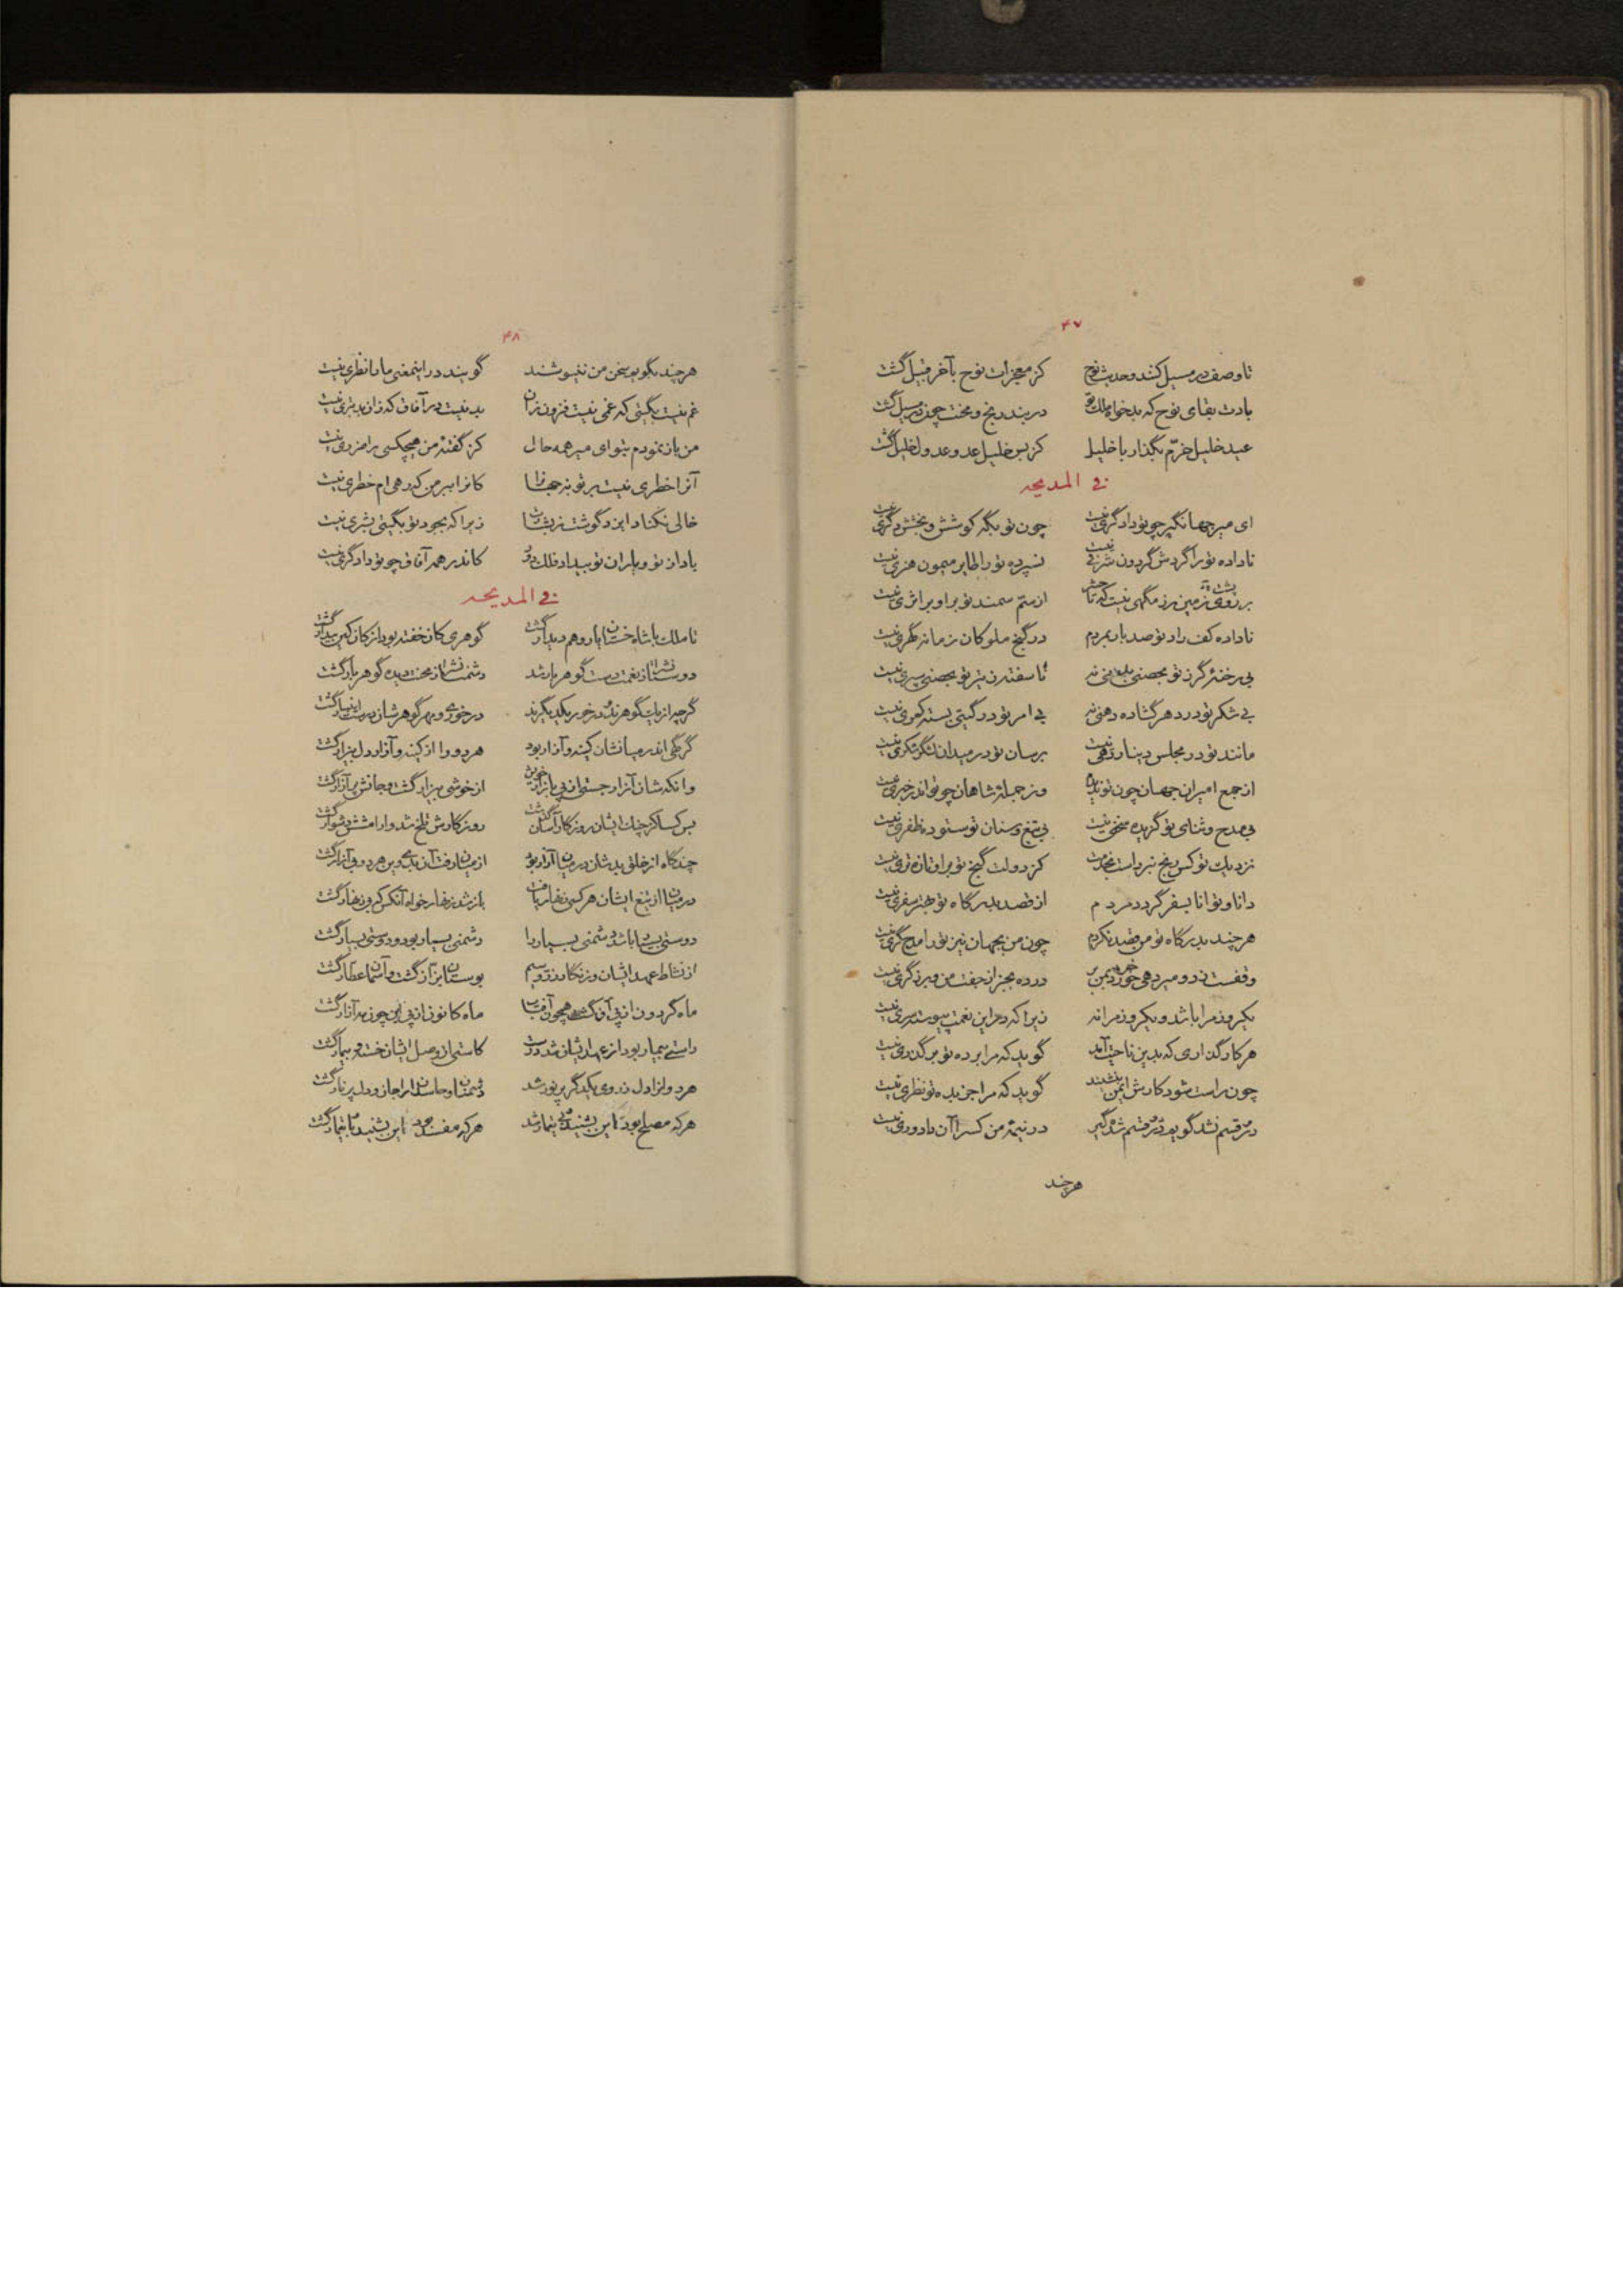 ۴۷
تا وصف در مسیل کنند و حدیث نوح کز معجزات نوح بآخر قتیل گشت
بادت بقای نوح که بدخواه ملک تو در بند رنج و محنت چون در مسیل گشت
عید خلیل خرّم بگذار با خلیل کز بس خلیل عدو عدو لخلیل گشت
فی المدیحه
ای میر جهانگیر چو تو دادگری نیست چون تو بگه کوشش و بخشش دگری نیست
ناداده تو را گردش گردون شرفی نیست نسپرده تو را طایر میمون هنری نیست
بر روی زمین رزمگهی نیست که تا حشر از ستم سمند تو بر او بر اثری نیست
ناداده کف راد تو صد بار بمردم در گنج ملوکان زمانه گهری نیست
بی رخنهٔ گرز تو بحصنی نه ناسفته ز تیر تو بحصنی سپری نیست
بی شکر تو در دهر گشاده دهنی نه بی امر تو در گیتی بسته کمری نیست
مانند تو در مجلس دینار دهی نیست برسان تو در میدان لشگر شکری نیست
از جمع امیران جهان چون تو ندیدم وز جمله شاهان چو تو اندر خبری نیست
بی مدح و ثنای تو گزیده سخنی نیست بی تیغ و سنان تو ستوده ظفری نیست
نزدیک تو کس رنج نبرداست بخدمت کز دولت گنج تو بر او تازه تری نیست
دانا و توانا بسفر گردد مردم از قصد بدرگاه تو بهتر سفری نیست
هر چند بدرگاه تو من قصد نکردم چون من بجهان نیز تو را مدح گری نیست
وقفست درو میر دهی بر من در ده بجز از جفت من و برزگری نیست
یکروز مرا باشد و یکروز مرا نه زیرا که در این نعمت پیوسته سری نیست
هر کارگذاری که بدین ناحیت آمد گوید که مرا بر ده تو بر گذری نیست
چون راست شود کارش ایمن بنشیند گوید که مرا جز بده تو نظری نیست
در قسم نشد گویم در قسم شده گیر در نیمهٔ من کس را آن داوری نیست
هر چند
۴۸
هر چند بگویم سخن من ننیوشند گویند در اینمعنی ما را نظری نیست
غم نیست بگیتی که غمی نیست فزون زان بد نیست در آفاق که زان بد بتری نیست
من باز نمودم بتو ای میر همه حال کز گفتهٔ من هیچکسی را ضرری نیست
آنرا خطری نیست بر تو بر جهانرا کانرا بر من که رهی ام خطری نیست
خالی نکناد ایزد گوشت ز بشارت زیرا که بجود تو بگیتی بشری نیست
یاد از تو و یاران تو بیداد فلک دور کاندر همه آفاق چو تو دادگری نیست
فی المدیحه
تا ملک با شاه خسروان یار و هم دیدار گشت گوهری کان خفته بود از کان کین بیدار گشت
دوستانشانرا ز نعمت دست گوهر بار شد دشمنانشانرا ز محنت دیده گوهر بار گشت
گرچه از یک گوهرند و در خور یکدیگرند در خوری و مهر گوهرشان بدست اینبار گشت
گر یکی اندر میانشان کینه و آزار بود هر دو را از کینه و آزار دل بیزار گشت
وانکه شان آزار جستی از پی بازار خویش از خوشی بیزار گشت و جانش پر آزار گشت
بس کسا کز جنگ ایشان روزگار آسان گذشت روزگارش تلخ شد و آرامشش دشوار گشت
چند گاه از خلق بد شان در میان آزار بود از میان رفت آن بدی وین هر دو بی آزار گشت
در میان از تیغ ایشان هر کسی زنهار یافت باز شد زنهار خواه آنکس کزو زنهار گشت
دوستی بسیار باشد دشمنی بسیار را دشمنی بسیار بود و دوستی بسیار گشت
از نشاط عهد ایشان وز نگار زر و سیم بوستان بزاز گشت و آسمان عطار گشت
ماه گردون از پی آن گشت همچون آفتاب ماه کانون از پی این چون مه آذار گشت
راستی بیمار بود از عهد ایشان شد درست کاستی از وصل ایشان خسته و بیمار گشت
هر دو انرا دل ز روی یکدگر پر نور شد دشمنان و حاسدانرا جان و دل پر نار گشت
هر که مصلح بود این بشنید بی تیمار شد هر که مفسد بود این بشنید با تیمار گشت